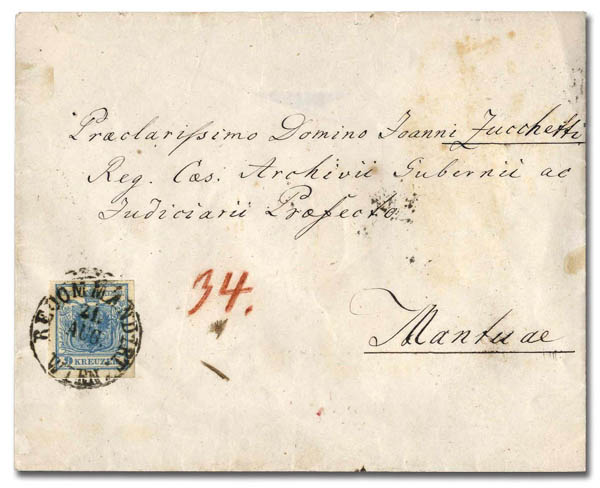 Præclarissimo Domino Joanni Zucchetti
Reg. Cæs. Archivii Gubernii ac
Judiciarii Præfecto
34.
Mantuae
RECOMMANDIRT
21.
AUG.
WIEN
9 KREUZER